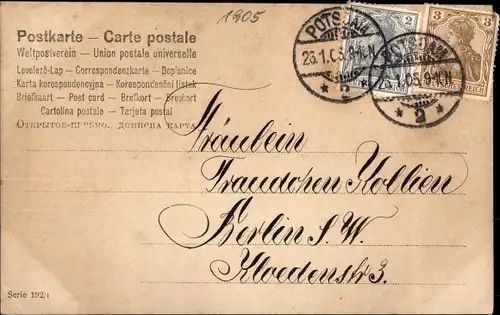 1905
Postkarte — Carte postale
Weltpostverein — Union postale universelle
Levelező-Lap — Correspondenzkarte — Dopisnice
Karta korespondencyjna — Korespondenční listek
Briefkaart — Post card — Brefkort — Brevkort
Cartolina postale — Tarjeta postal
Открытое письмо. дописна карта
POTSDAM
23.1.05.9-10.N
* 2 *
POTSDAM
1.05.9-10.N
* 2 *
2
3 3
REICH
Fräulein
Traudchen Kollien
Berlin S.W.
Kloedenstr. 3.
Serie 192/1